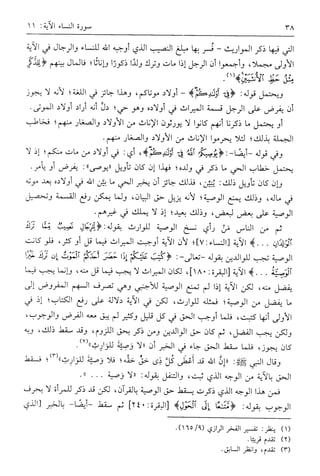 ٣٨ سورة النساء الآية: ١١
التي فيها ذكر المواريث - فُسر بها مبلغ النصيب الذي أوجبه الله للنساء والرجال في الآية
الأولى مجملا، وأجمعوا أن الرجل إذا مات وترك ولدًا ذكورًا وإناثًا؛ فالمال بينهم ﴿لِلذَّكَرِ
مِثْلُ حَظِّ الْأُنثَيَيْنِ﴾(١).
ويحتمل قوله: ﴿فِي أَوْلَادِكُمْ﴾ - أولاد موتاكم، وهذا جائز في اللغة؛ لأنه لا يجوز
أن يفرض على الرجل قسمة الميراث في أولاده وهو حي؛ دلَّ أنه أراد أولاد الموتى.
أو يحتمل ما ذكرنا أنهم كانوا لا يورثون الإناث من الأولاد والصغار منهم؛ فخاطب
الجملة بذلك؛ لئلا يحرموا الإناث من الأولاد والصغار منهم.
وفي قوله - أيضًا -: ﴿يُوصِيكُمُ اللَّهُ فِي أَوْلَادِكُمْ﴾، أي: في أولاد من مات منكم؛ إذ لا
يحتمل خطاب الحي ما ذكر في ولده؛ فهذا إن كان تأويل «يوصى»: يفرض أو يأمر.
وإن كان تأويل ذلك: يُبَيِّن، فذلك جائز أن يخبر الحي ما بيّن الله في أولاده بعد موته
في ماله، وذلك يمنع الوصية؛ لأنه يزيل حق البيان، ولما يمكن رفع القسمة وتحصيل
الوصية على بعض لبعض، وذلك بعيد؛ إذ لا يملك في غيرهم.
ثم من الناس مَنْ رأى نسخ الوصية للوارث بقوله: ﴿لِّلرِّجَالِ نَصِيبٌ مِّمَّا تَرَكَ
الْوَالِدَانِ ...﴾ الآية [النساء: ٧]؛ لأن الآية أوجبت الميراث فيما قل أو كثر، فلو كانت
الوصية تجب للوالدين بقوله -تعالى-: ﴿كُتِبَ عَلَيْكُمْ إِذَا حَضَرَ أَحَدَكُمُ الْمَوْتُ إِن تَرَكَ خَيْرًا
الْوَصِيَّةُ ...﴾ الآية [البقرة: ١٨٠]، لكان الميراث لا يجب فيما قل منه، وإنما يجب فيما
يفضل منه، لكن الآية إذا لم تمنع الوصية للأجنبي وهي تصرف السهم المفروض إلى
ما يفضل من الوصية؛ فمثله للوارث، لكن في الآية دلالة على رفع الكتاب؛ إذ في
الأولى أنها كتبت، فلما أوجب الحق في كل قليل وكثير لم يبق معه الفرض والوجوب،
ولكن يجب الفضل، ثم كان حق الوالدين ومن ذكر بحق اللزوم، وقد سقط ذلك، وبه
كان يجوز، فلما سقط الحق جاء في الخبر أن «لَا وَصِيَّةَ لِلوَارِثِ»(٢).
وقال النبي ﷺ: «إِنَّ اللهَ قد أَعْطَى كُلَّ ذِي حَقٍّ حَقَّه؛ فَلَا وَصِيَّةَ لِلوَارِثِ»(٣)؛ فسقط
الحق بالآية من الوجه الذي ثبت، والتنفل بقوله: «لا وَصِيَّةَ ...».
فمن هذا الوجه الذي ذكرت يسقط حق الوصية بالقرآن، لكن قد ذكر للمرأة لا يحرف
الوجوب بقوله: ﴿مَّتَاعًا إِلَى الْحَوْلِ﴾ [البقرة: ٢٤٠] ثم سقط - أيضًا - بالخبر [الذي
(١) ينظر: تفسير الفخر الرازي (٩/ ١٦٥).
(٢) تقدم قريبًا.
(٣) تقدم، وانظر السابق.